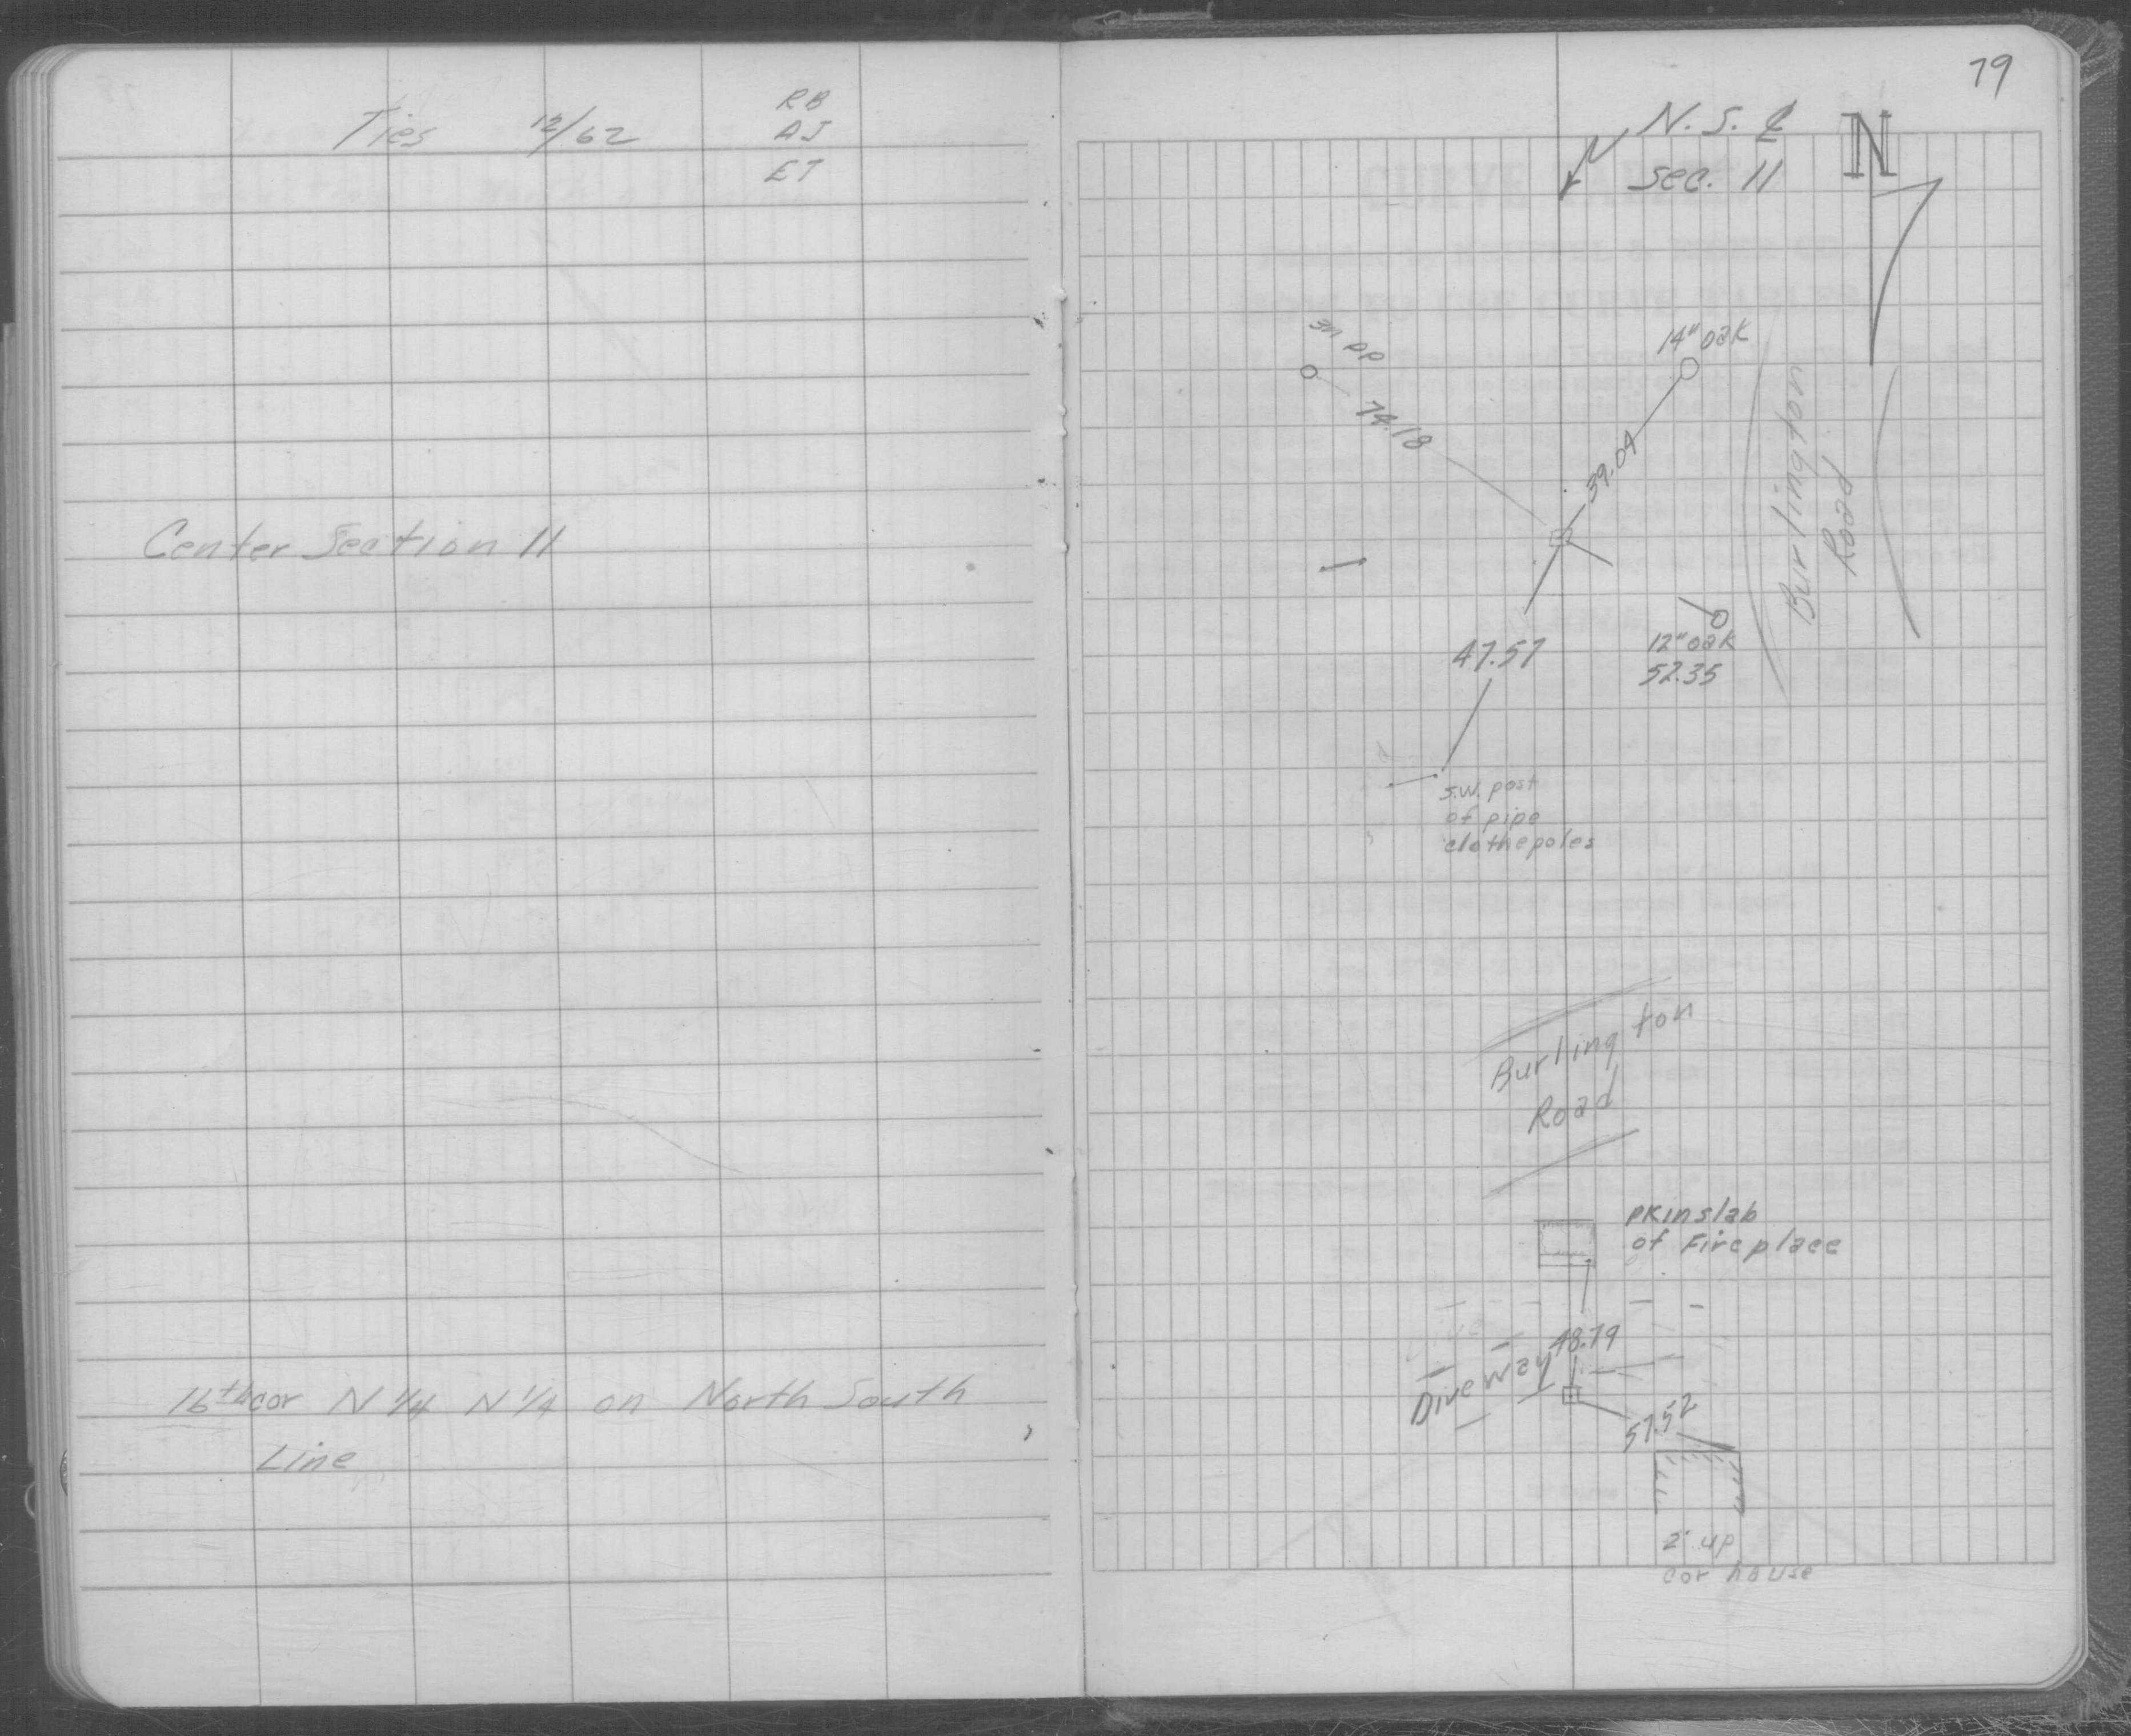 Ties 12/62
RB
AJ
ET
Center Section 11
16th cor N 1/4 N 1/4 on North South
Line
79
N. S. ℄
Sec. 11
N
14" oak
PP
74.18
39.04
Burlington
Road
47.57
12" oak
52.35
S.W. post
of pipe
clothepoles
Burlington
Road
PK in slab
of Fireplace
48.79
Diveway
57.52
2' up
cor house